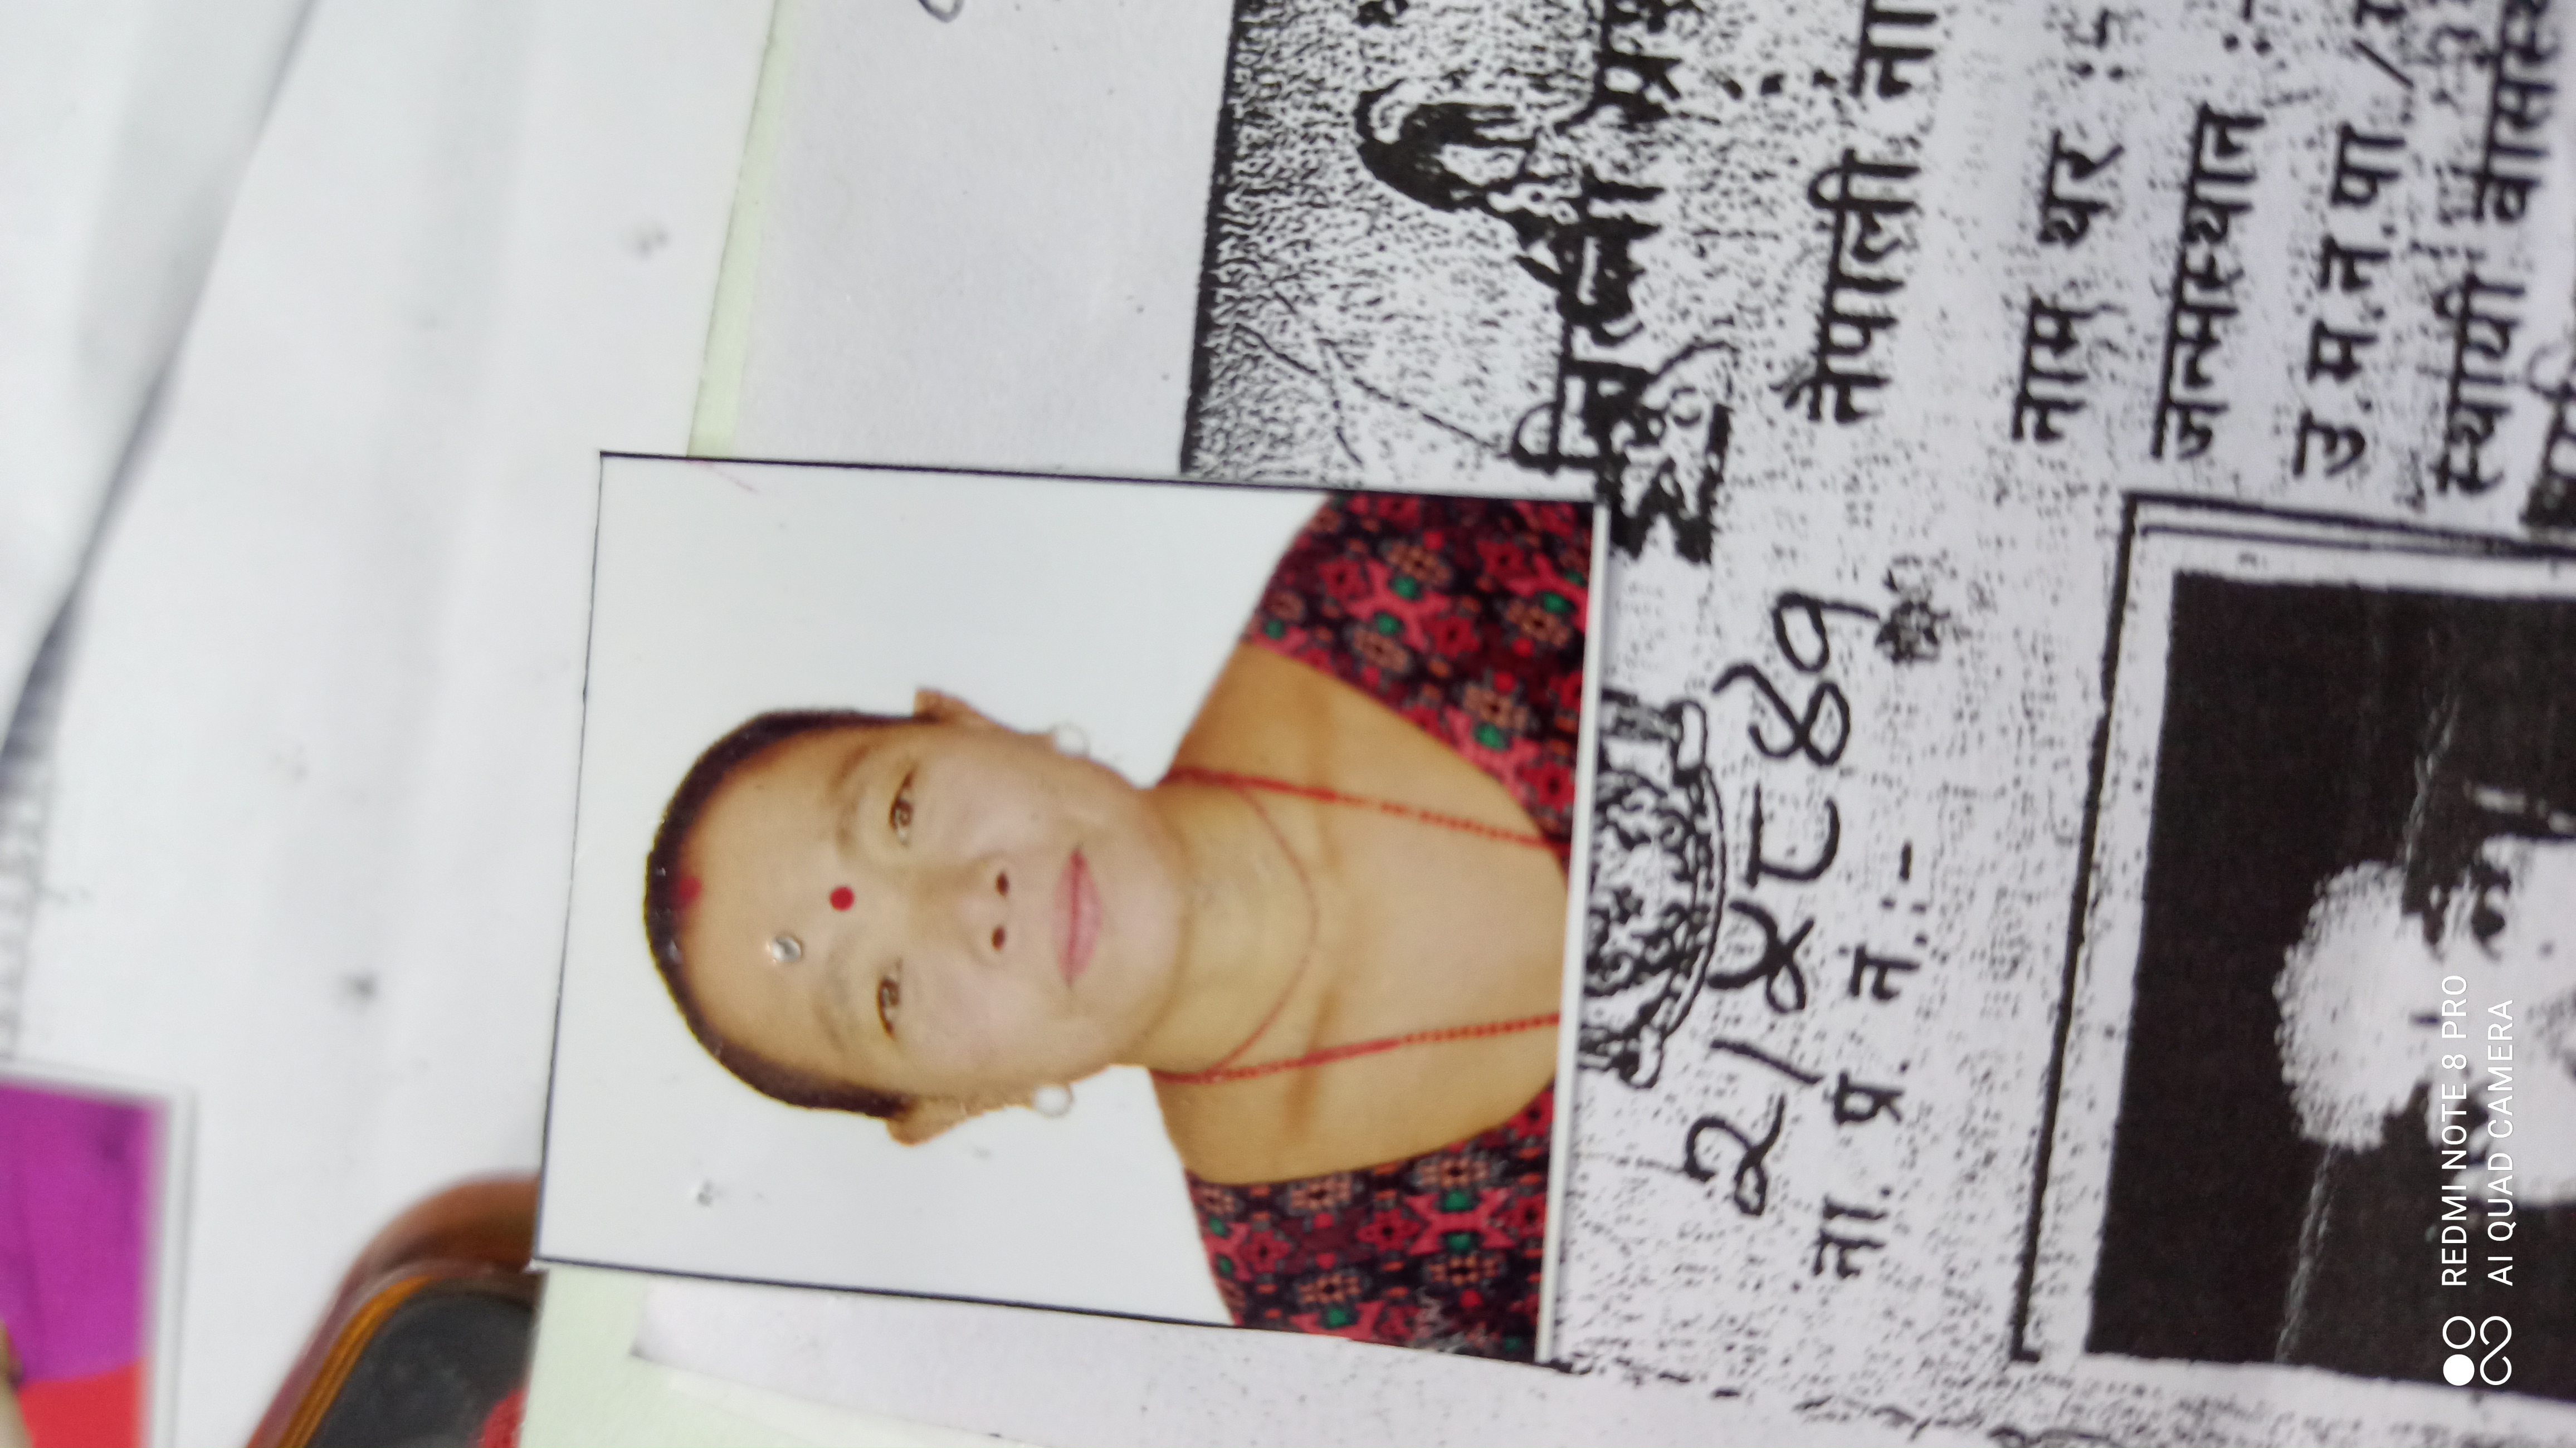 जिल्ला
२१५८४१
ना. प्र. नं.:-
नेपाली ना
नाम थर :
जन्मस्थान :
उ.म.न.पा. /
स्थायी
REDMI NOTE 8 PRO
AI QUAD CAMERA